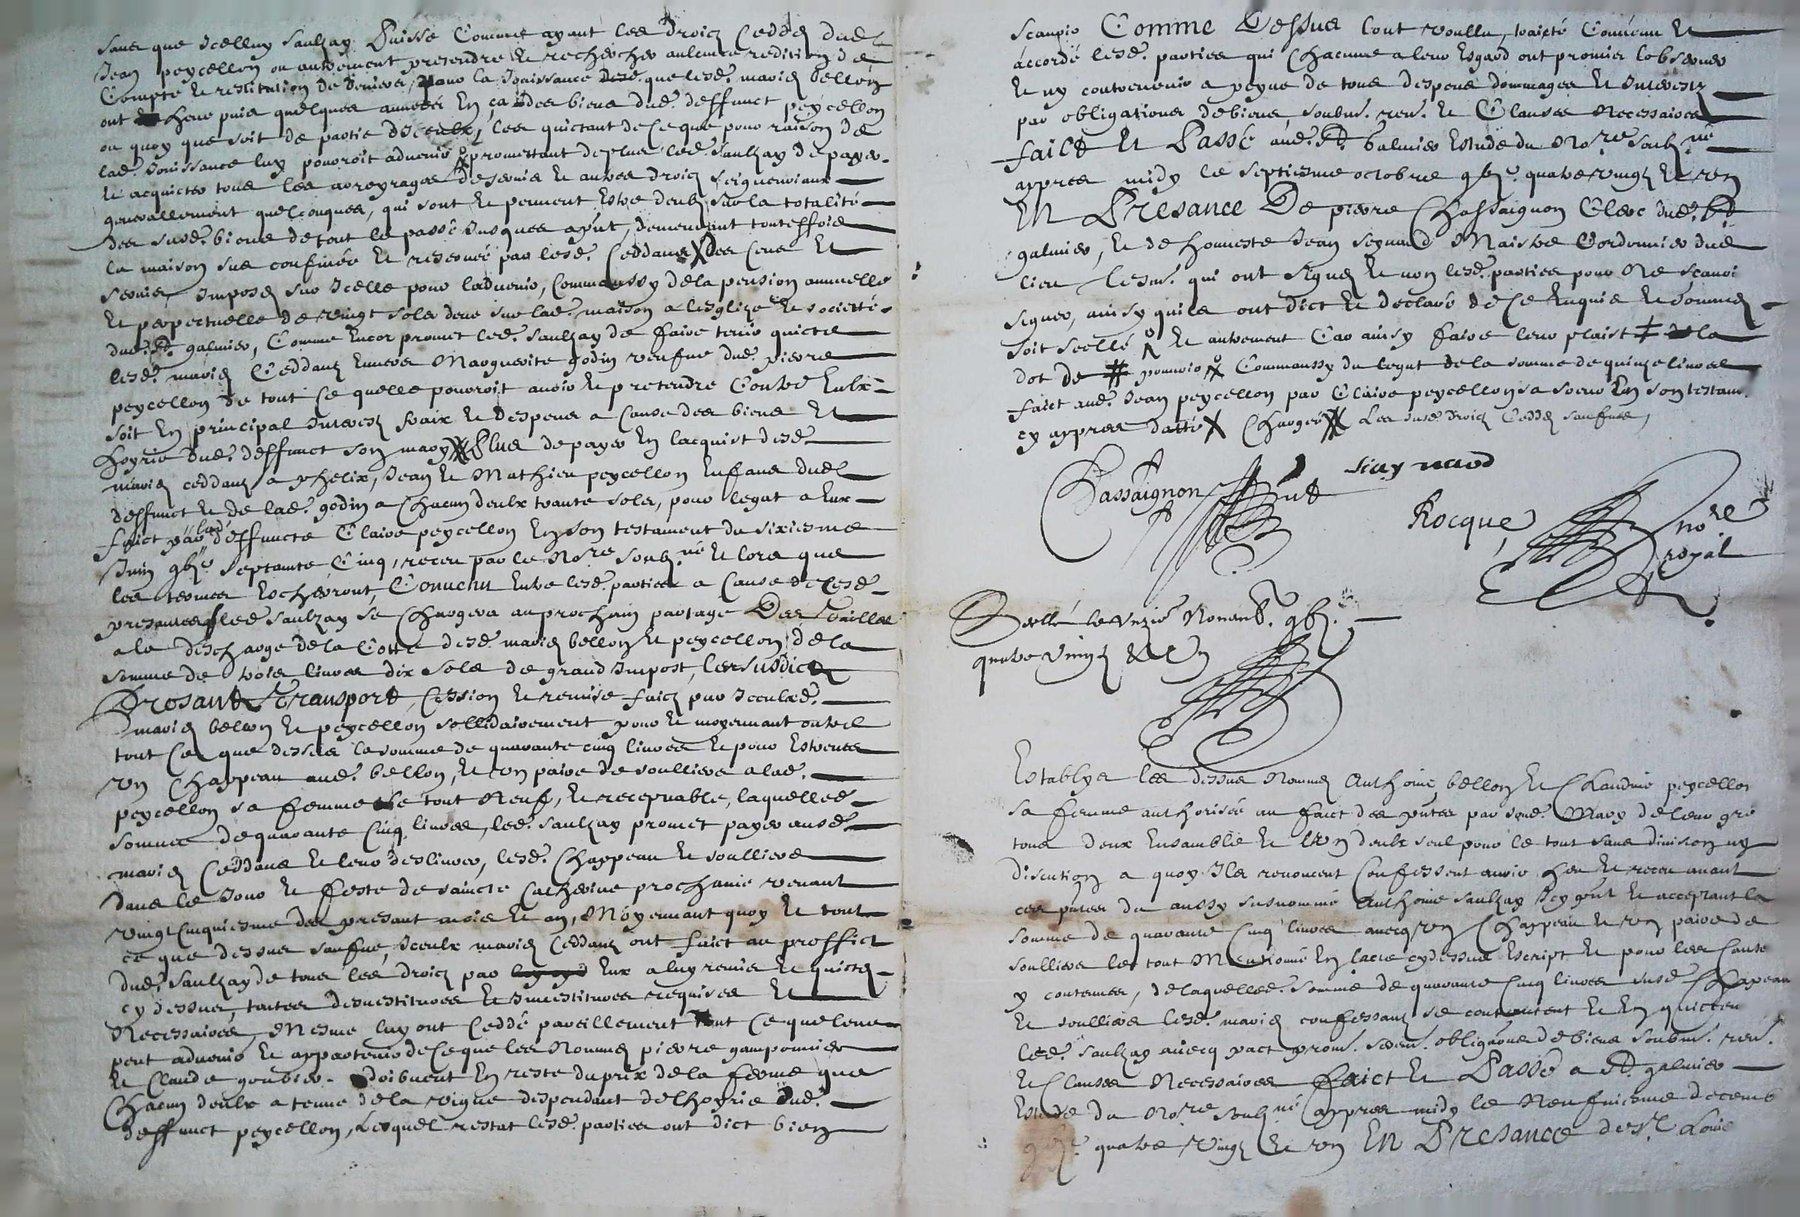 sans que Icelluy Saulzay Puisse Comme ayant les droicz Ceddés dud.
Jean peycellon ou autrement pretendre Et rechercher aulcune redition de
Compte Et restitution de deniers, pour la Jouissance que lesd. mariés bellon
ont heue puis quelques années En ça des biens dud. deffunct peycellon
ou quoy que soit de partie diceulx, les quictant de Ce que pour raison de
lad. Jouissance luy pouvroit advenir promettant de plus led. Saulzay de payer
Et acquicter tous les arreyrages de servis Et autres droicz seigneuriaux
generallement quelconques, qui sont Et peuvent Estre deubz sur la totalité
des susd. biens de tout le passé Jusques a pnt, demeurant touteffois
la maison sus confinée Et reservée par lesd. Ceddans des Cens Et
servis Imposés sur Icelle pour ladvenir, Comm'aussy de la pension annuelle
Et perpetuelle de vingt sols deue sur lad. maison a lesglize Et societté
dud. St. galmier, Comme Encor promet led. Saulzay de faire tenir quicte
lesd. mariés Ceddans Envers Marguerite godin veufve dud. pierre
peycellon de tout Ce quelle pouvroit avoir Et pretendre Contre Eulx
soit En principal Interestz fraix Et despens a Cause des biens Et
hoyrie dud. deffunct son mary Plus de payer En lacquist desd.
mariés ceddans a phelix, Jean Et Mathieu peycellon Enfans dud.
deffunct Et de lad. godin a Chacun deulx trante sols, pour legat a Eux
faict par lad. deffuncte Claire peycellon En son testament du sixiesme
Juin gbje. septante Cinq, receu par le Nore. soubzné. Et lors que
les termes Eschevront, Convenu Entre lesd. parties a Cause de Cesd.
presantes led. Saulzay se Chargera au prochain partage Des Tailles
a la descharge de la Cotte desd. mariés bellon Et peycellon de la
somme de trois livres dix sols de grand Impost, les susdictz
Presant Transport, Cession Et remise faicz par Iceulxd.
mariés bellon Et peycellon sollidairement pour Et moyennant outre
tout Ce que dessus la somme de quarante cinq livres Et pour Estrenes
vn Chappeau aud. bellon, Et vn paire de soulliers a lad.
peycellon sa femme le tout Neuf, Et recepvable, laquelled.
somme de quarante Cinq livres, led. Saulzay promet payer ausd.
mariés Ceddans Et leur deslivrer, lesd. Chappeau Et soulliers
dans le Jour Et feste de saincte Catherine prochaine venant
vingt cinquiesme des presant mois Et an, Moyennant quoy Et tout
ce que dessus saufvé, Iceulx mariés Ceddans ont faict au proffict
dud. Saulzay de tous les droicz par Eux a luy remis Et quictés
cy dessus, toutes desvestitures Et Investitures requises Et
Necessaires, Mesme luy ont Ceddé pareillement tout Ce que leur
peut advenir Et appartenir de Ce que les Nommés pierre gamponnier
Et Claude goubier doibvent En reste du prix de la ferme que
Chacun deulx a tenue de la vigne despendant de lhoyrie dud.
deffunct peycellon, Lesquel restat lesd. parties ont dict bien
scavoir Comme Dessus tout voullu, traicté Convenu Et
accordé lesd. parties qui Chacune a leur Esgard ont promier lobserver
Et ny contrevenir a peyne de tous despens dommages Et Interestz
par obligations de biens soubm. ren. Et Clauses Necessaires
faict Et Passé aud. St galmier Estude du Nore. soubzné.
appres midy le septiesme octobre gbje. quatre vingtz Et vn
En Presance De pierre Chassaignon Clerc dud. St
galmier, Et de honneste Jean seynaud Maistre Cordonnier dud.
lieu tesm. qui ont signés Et non lesd. parties pour Ne scavoi
signer, ainsy quils ont dict Et declaré de Ce Enquis Et sommés
soit scellé Et autrement Car ainsy faire leur plaist la
dot de pouvoir Comm'aussy du legat de la somme de quinze livres
faict aud. Jean peycellon par Claire peycellon sa soeur En son testam.
cy appres datté Chargés Les susd. droicz Ceddés saufvés,
Chassaignon pnt
Seaynaud
Rocque, nore. royal
Scellé le Novemb. gbje.
quatre vingtz Et Vn
Establys les dessus Nommés Anthoine bellon Et Claudine peycellon
sa femme authorisée au faict des pntes par sond. Mary de leur gré
tous deux Ensamble Et lvn deulx seul pour le tout sans division ny
discution a quoy Ils renoncent Confessent avoir heu Et receu avant
ces pntes du aussy susnommé Anthoine Saulzay Icy pnt Et acceptant la
somme de quarante Cinq livres avecq vn Chappeau Et vn paire de
soulliers le tout Mentionné En lacte cy dessus Escript Et pour les Cause
y contenues, de laquelled. somme de quarante Cinq livres susd. Chapeau
Et soulliers lesd. mariés confessans se contentent Et En quictent
led. Saulzay avecq pact prom. serm. obligaons de biens soubm. ren.
Et Clauses Necessaires Faict Et Passé a St. galmier
Estude du Nore. soubzné. appres midy le Neufviesme decemb
gbje. quatre vingtz Et vn En Presance de sr. Louis